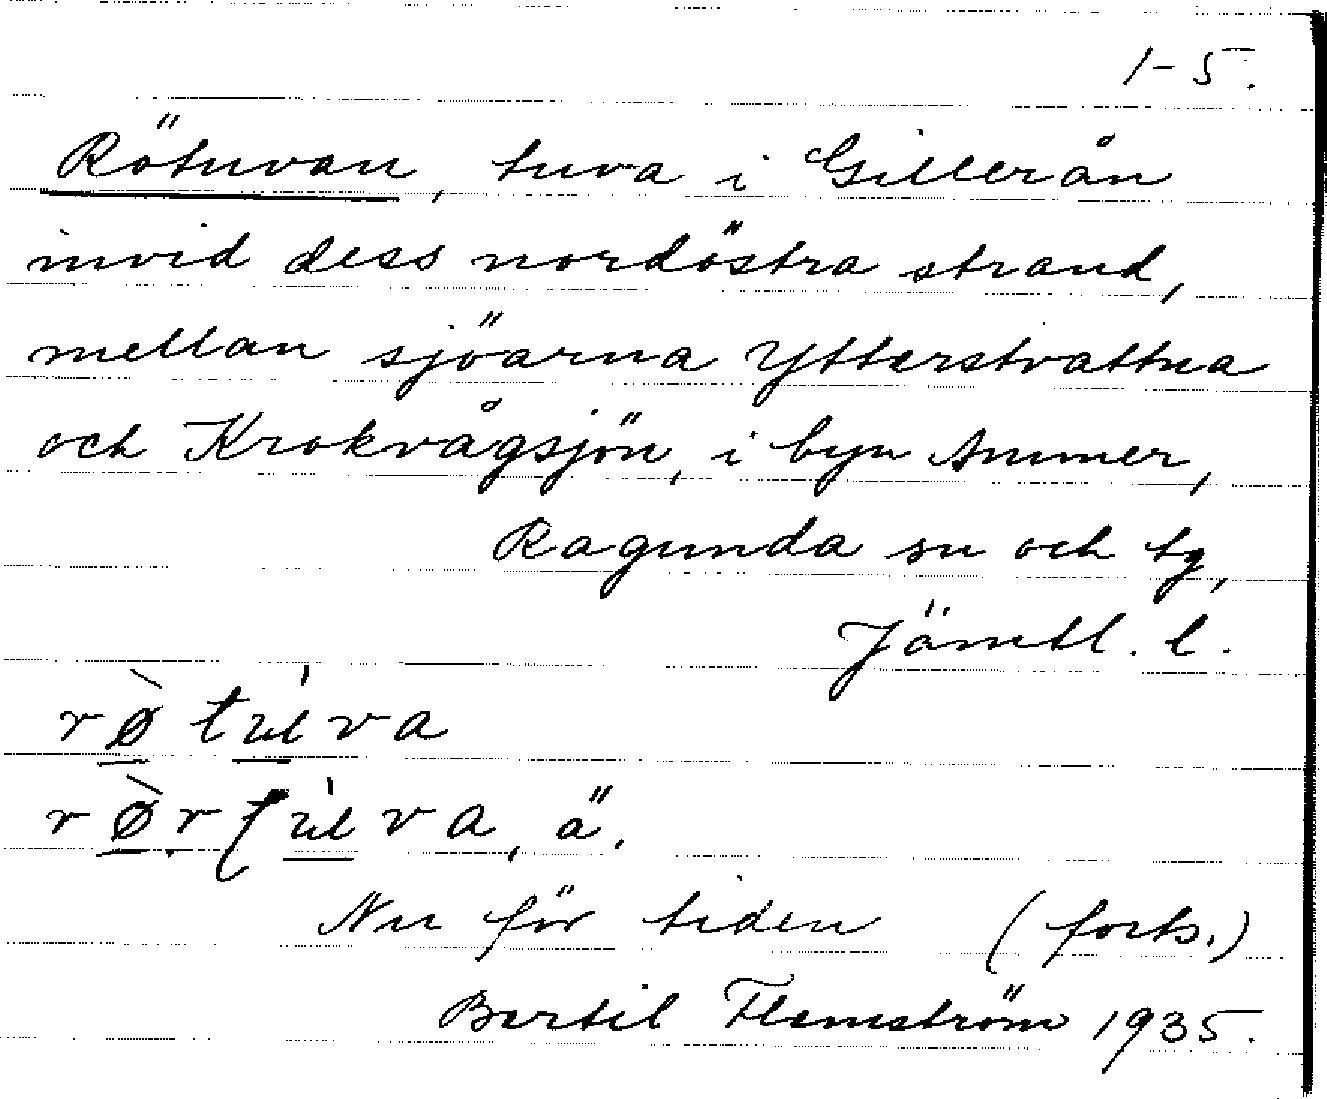 1-5.
Rötuvan, tuva i Gillerån
invid dess nordöstra strand,
mellan sjöarna Ytterstvattna
och Krokvågsjön, i byn Ammer,
Ragunda sn och tg,
Jämtl. l.
rø̀tu̍va
rø̀rtu̍va, ä.
Nu för tiden (forts.)
Bertil Flemström 1935.